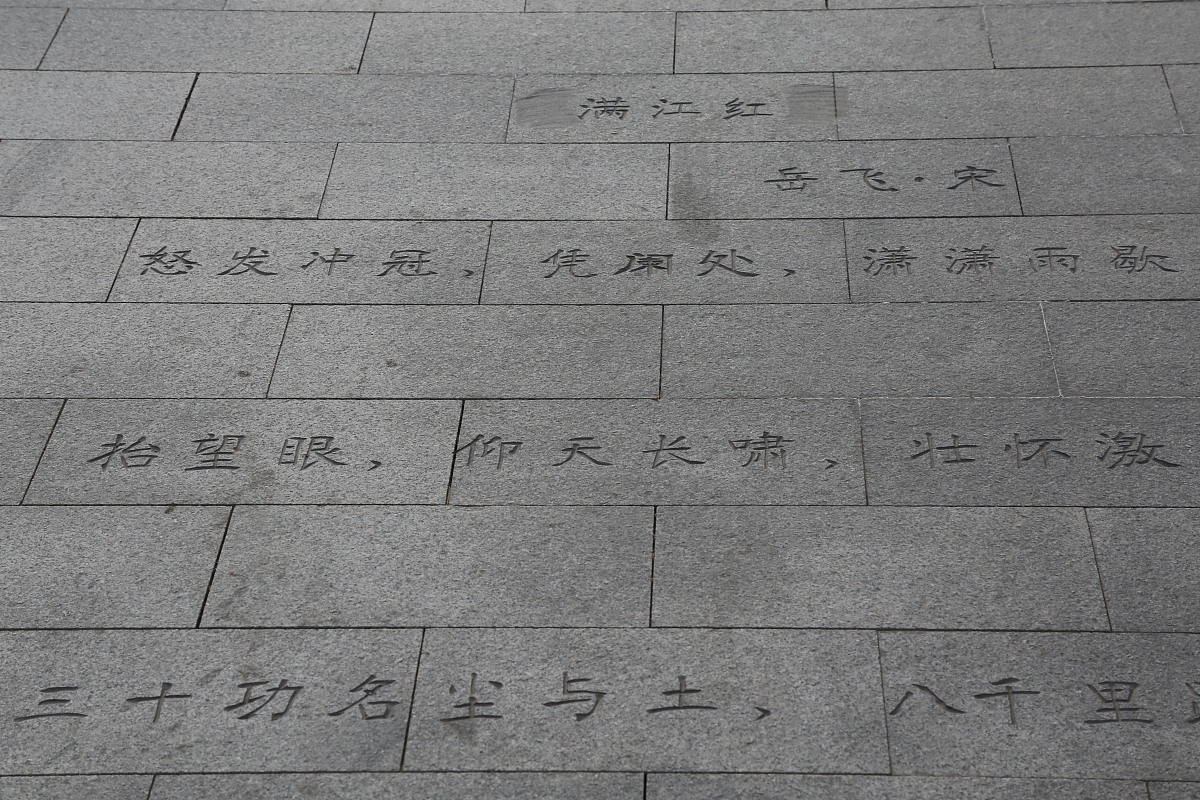 满江红
岳飞·宋
怒发冲冠，凭阑处，潇潇雨歇
抬望眼，仰天长啸，壮怀激
三十功名尘与土，八千里